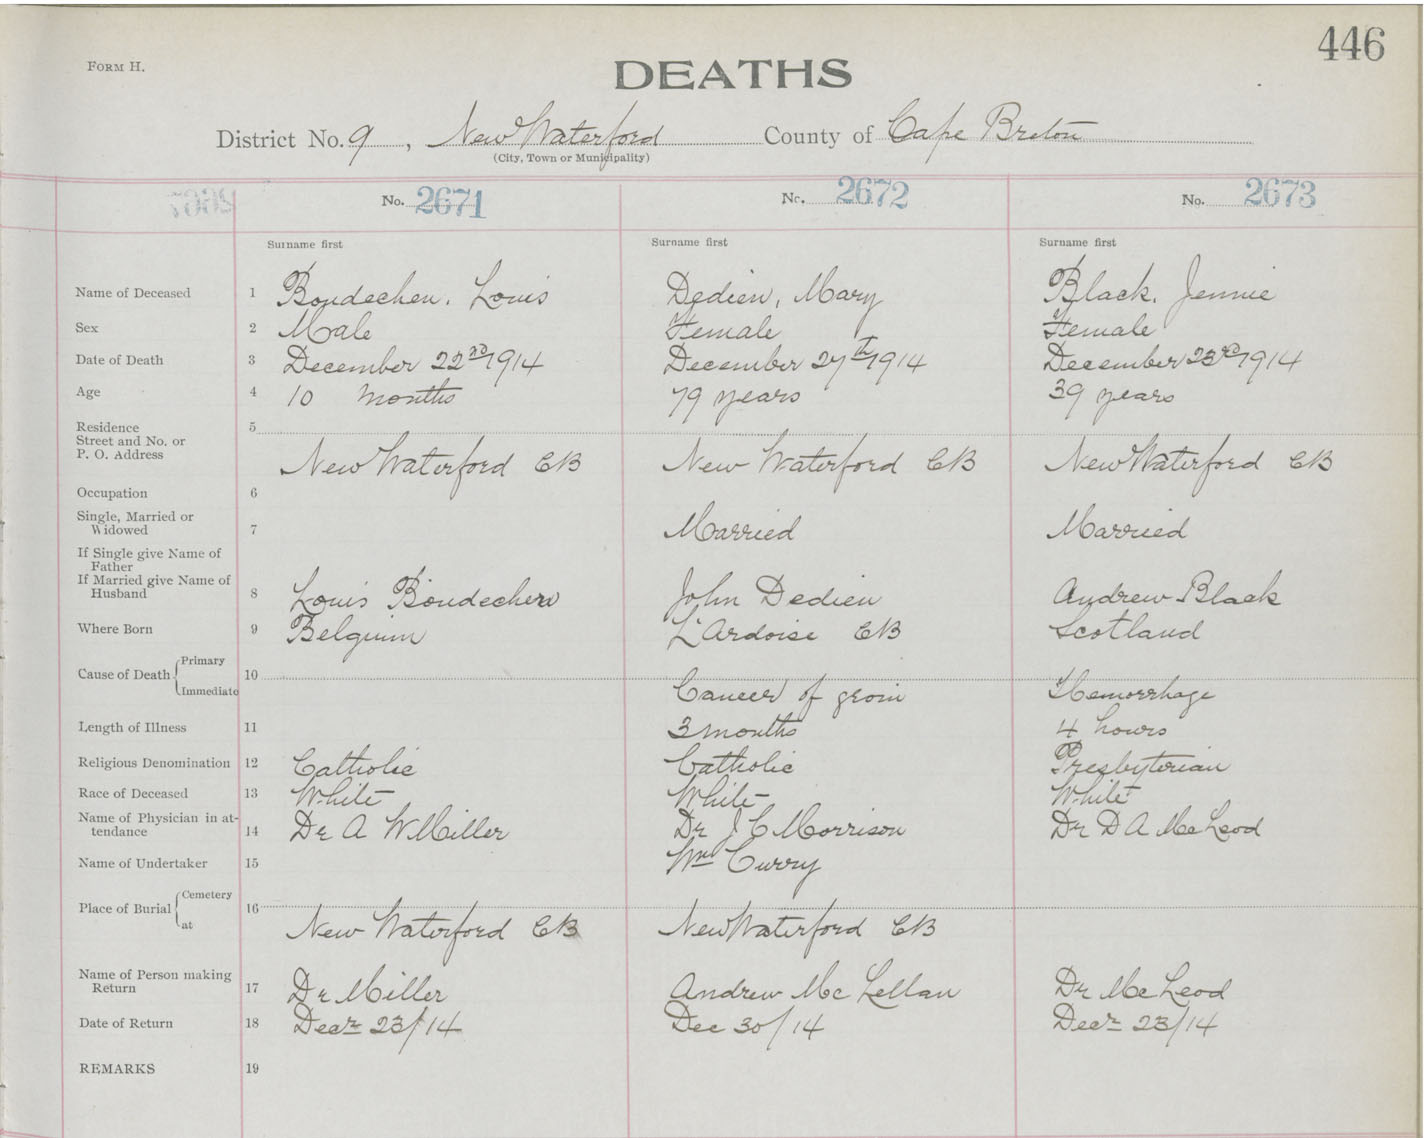 446
FORM H.
DEATHS
District No. 9, New Waterford County of Cape Breton
(City, Town or Municipality)
No. 2671 No. 2672 No. 2673
Surname first Surname first Surname first
Name of Deceased 1 Boudechen, Louis Dedien, Mary Black, Jennie
Sex 2 Male Female Female
Date of Death 3 December 22nd 1914 December 27th 1914 December 23rd 1914
Age 4 10 months 79 years 39 years
Residence 5
Street and No. or
P. O. Address New Waterford CB New Waterford CB New Waterford CB
Occupation 6
Single, Married or
Widowed 7 Married Married
If Single give Name of
Father
If Married give Name of
Husband 8 Louis Boudechen John Dedien Andrew Black
Where Born 9 Belguim L'Ardoise CB Scotland
Cause of Death Primary 10
Immediate Cancer of groin Hemorrhage
Length of Illness 11 3 months 4 hours
Religious Denomination 12 Catholic Catholic Presbyterian
Race of Deceased 13 White White White
Name of Physician in at-
tendance 14 Dr A W Miller Dr J C Morrison Dr D A McLeod
Name of Undertaker 15 Wm Curry
Place of Burial Cemetery 16
at New Waterford CB New Waterford CB
Name of Person making
Return 17 Dr Miller Andrew McLellan Dr McLeod
Date of Return 18 Decr 23/14 Dec 30/14 Decr 23/14
REMARKS 19